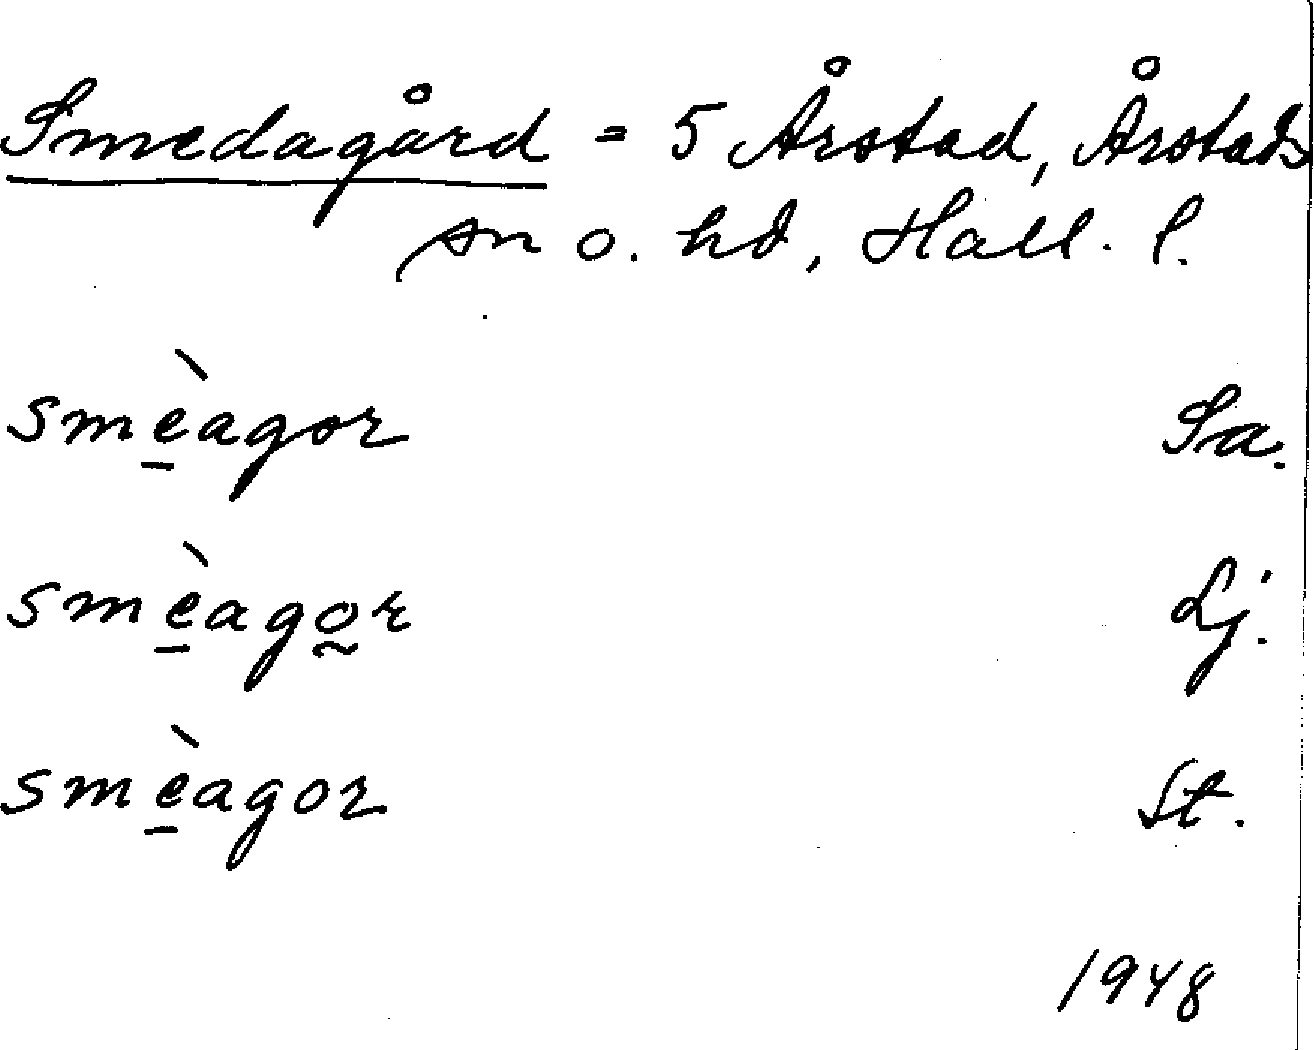 Smedagård = 5 Årstad, Årstads
sn o. hd, Hall. l.
smè̱agor Sa.
smè̱ago̰r Lj.
smè̱agor St.
1948